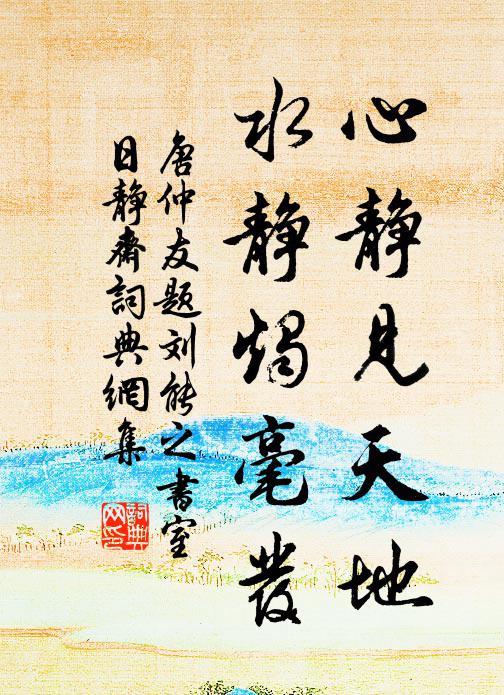 心静見天地
水静燭毫發
唐仲友题刘能之書室
日静齋詞典網集
詞典
网印